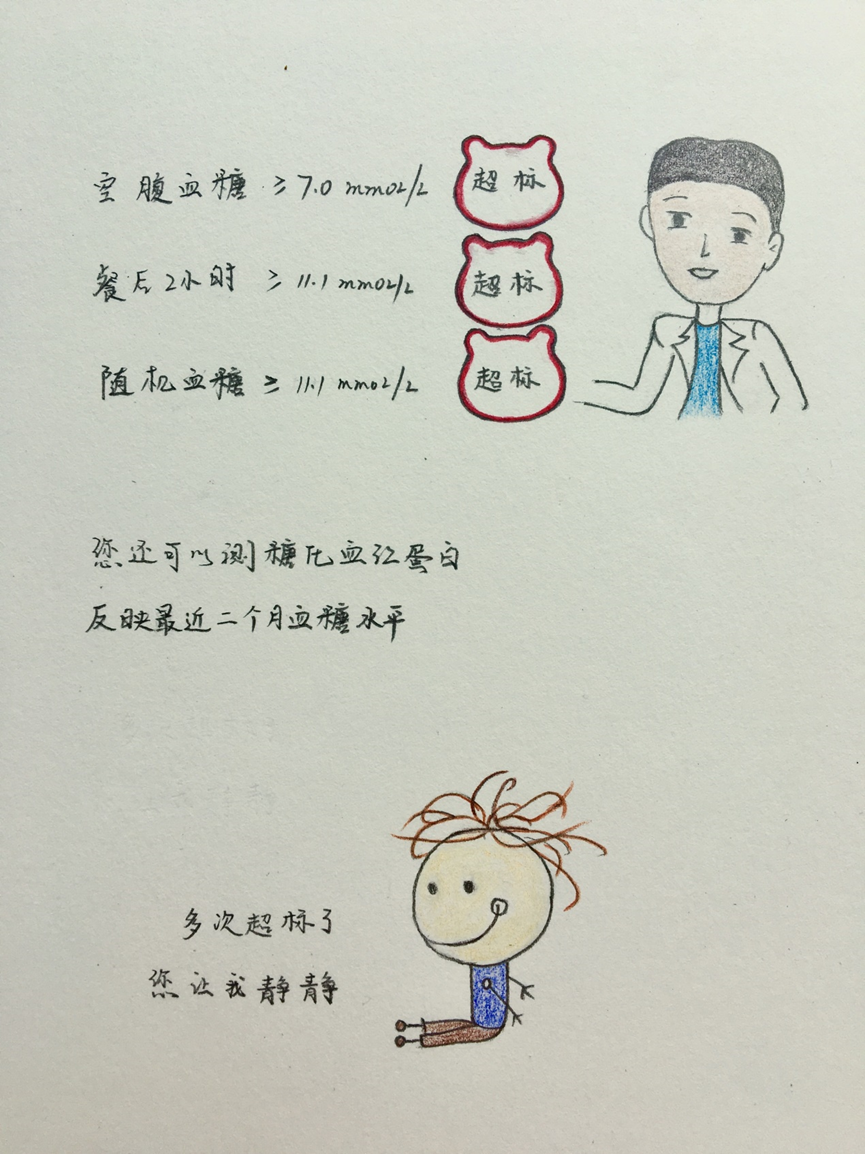 空腹血糖 ≥ 7.0 mmol/L 超标
餐后2小时 ≥ 11.1 mmol/L 超标
随机血糖 ≥ 11.1 mmol/L 超标
您还可以测糖化血红蛋白
反映最近二个月血糖水平
多次超标了
您让我静静